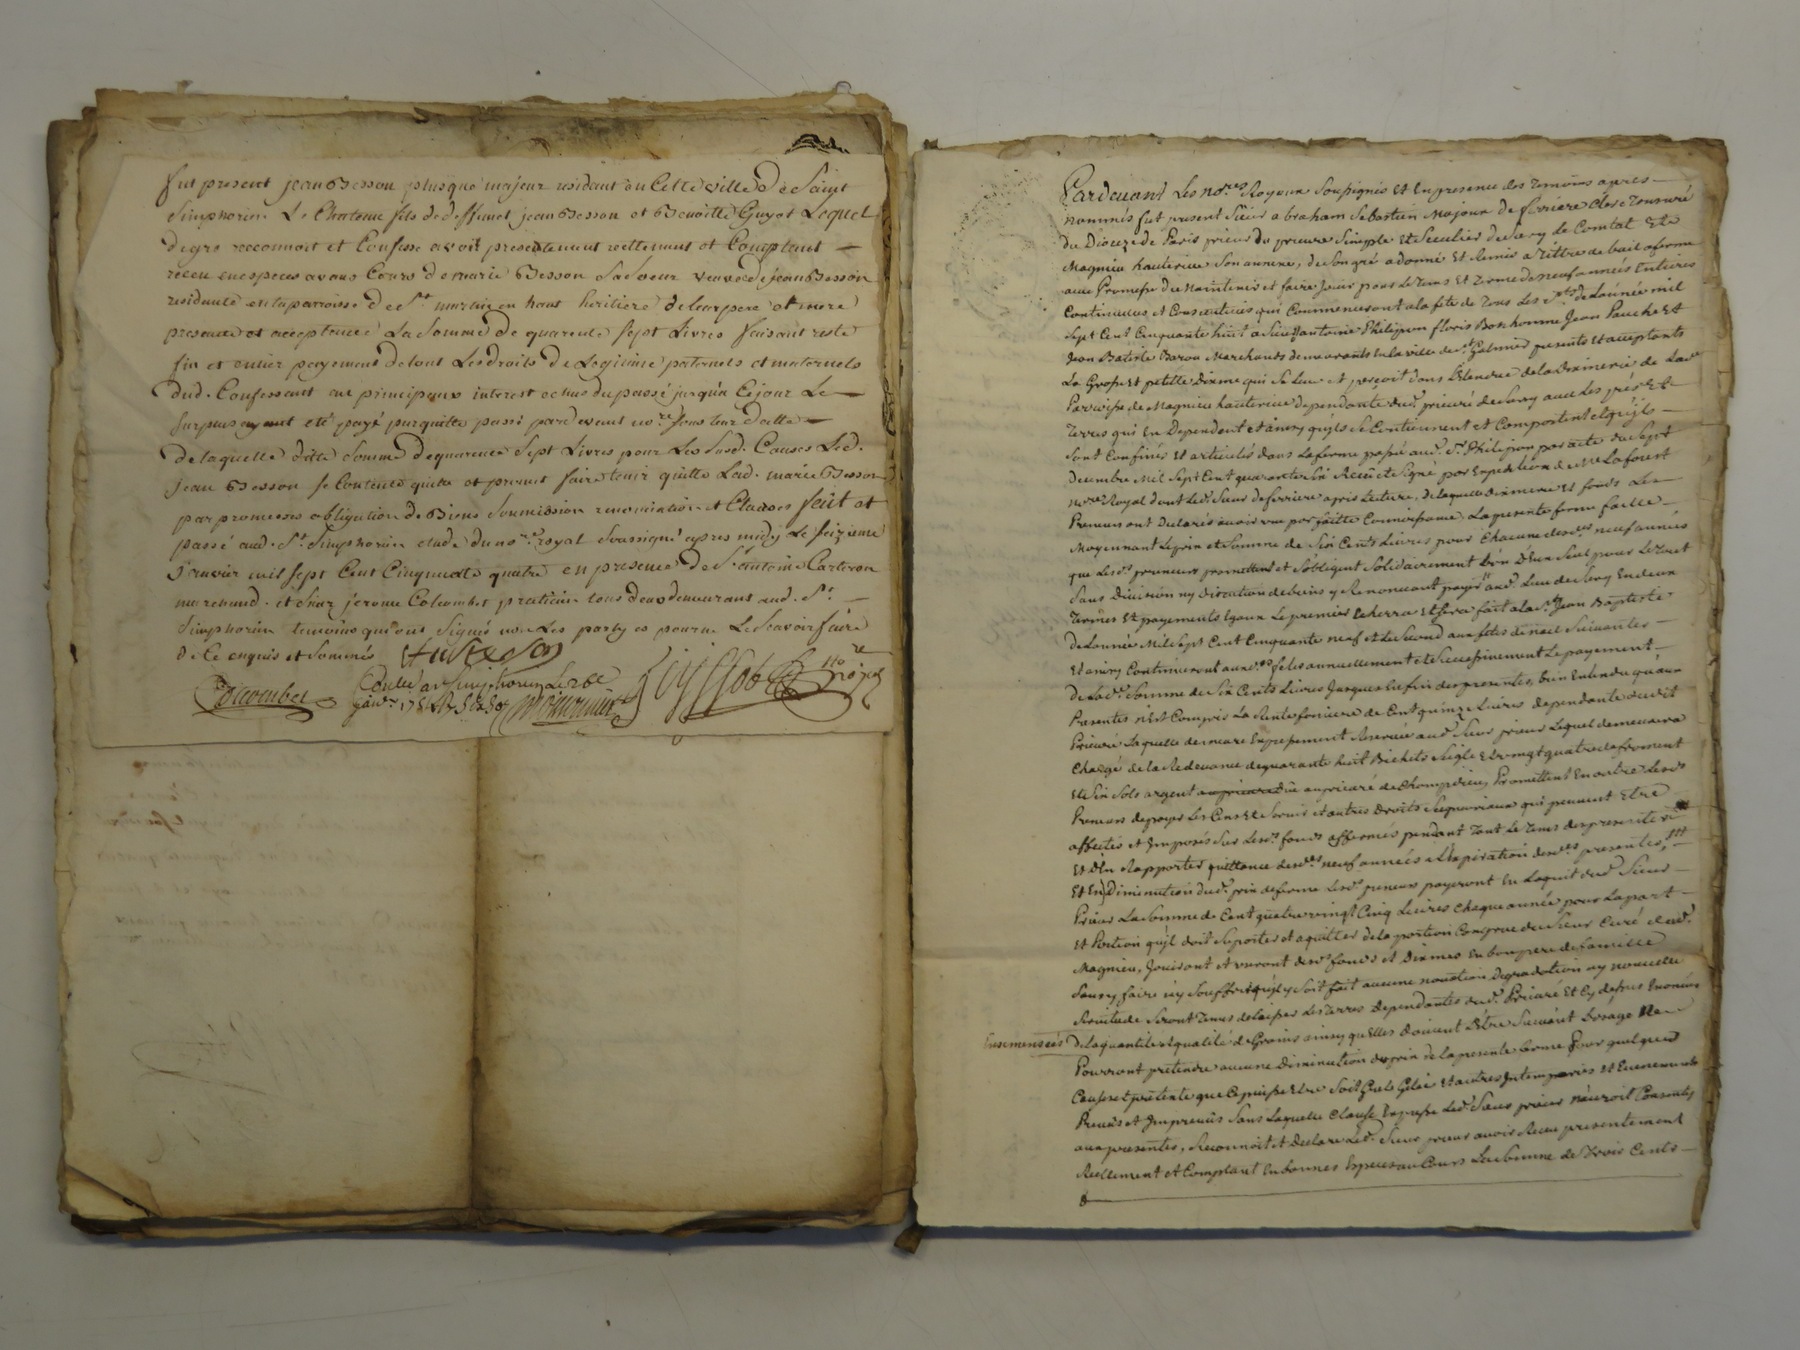 fut present jean Besson plus que majeur residant en Cette ville de Saint
Simphorien Le Chateau fils de deffunct jean Besson et Benoitte Guyot Lequel
de gre reconnoit et Confesse avoir presentement reellement et Comptant
receu en especes avans Cours de marie Besson Sa Soeur veuve de jean Besson
residante en la parroisse de St martin en haut heritiere de leur pere et mere
presente et acceptante La Somme de quarente Sept Livres faisant reste
fin et entier payement de tout Les droits de Legitime paternels et maternels
dud. Confessant en principaux interest echus du passé jusqu'a Cejour Le
Surplus ayant eté payé par quitte passé pardevant nore. Sous leur datte
de laquelle ditte Somme de quarente Sept Livres pour Les Susd. Causes Led.
jean Besson Se Contente quitte et promet faire tenir quitte Lad. marie Besson
par promesses obligation de Biens Soumission renonciation et Clauses fait et
passé aud. St. Simphorien etude du nore. royal Soussigné apres midy Le Seizieme
janvier mil Sept Cent Cinquante quatre en presence de Sr. antoine Carteron
marchand et Sieur jerome Colcombet praticien tous deux demeurants aud. St.
Simphorien temoins qui ont Signé non Les partyes pour ne Le Scavoir faire
de Ce enquis et Sommés
Colcombet
Con.lé a St Simphorien Le 26e
janv. 1754
nore royal
Pardevant Les nores. Royaux Soussignés Et En presence des Temoins apres
nommés fut present Sieur abraham Sebastien Majoux de ferriere Clerc Tonsuré
du Dioceze de Paris prieur du prieuré Simple Et Seculier de Savy le Comtal Et de
Magnieu hauterive Son annexe, de Son gré a donné Et Remis a Tiltre de bail a ferme
avec Promesse de Maintenir et faire Jouir pour le Tems Et Terme de neuf années Entieres
Continues et Consecutives qui Commenceront a la fete de Tous Les Sts. de Lannée mil
Sept Cent Cinquante huit a Sieurs antoine Philipon floris Bonhomme Jean Pauche Et
Jean Batiste Baron Marchants demeurants En la ville de St. Galmier presents Et acceptants
La Grosse Et petitte Dixme qui Se leve et persoit dans L'Etendue de la Dixmerie de La
Paroisse de Magnieu hauterive dependante dud. prieuré de Savy avec Les prés Et
Terres qui En Dependent Et ainsy qu'ils Se Contiennent et Comportent Et qu'ils
Sont Confinés Et articulés dans La ferme passée aud. Sr. Philipon par acte du Sept
decembre Mil Sept Cent quarante Six Receu et Signé par Expedition de Me. Laforest
nore. Royal dont Led. Sieur de ferriere apris Lecture, de laquelle Dixmerie Et fonds Les
Preneurs ont declarés avoir une parfaitte Connoissance. La presente ferme faitte
Moyennant Le prix et Somme de Six Cents Livres pour Chacune desd. neuf années
que Lesds. preneurs promettent et S'obligent Solidairement L'un d'Eux Seul pour Le Tout
Sans Division ny Discution de biens y Renoncant payer aud. Lieu de Savy En deux
Termes Et payements Egaux Le premier Echerra Et Sera fait a la St. Jean Baptiste
de L'année Mil Sept Cent Cinquante neuf et Le Second aux fetes de noel Suivantes
Et ainsy Continueront auxd. fetes annuellement et Successivement Le payement
de Lad. Somme de Six Cents Livres Jusques En fin des presentes, bien Entendu qu'aux
Presentes n'est Compris La Rente fonciere de Cent quinze Livres dependante dudit
Prieuré Laquelle demeure Expressement Reservée aud. Sieur prieur Lequel demeurera
Chargé de la Redevance de quarante huit Bichets Seigle Et vingt quatre de froment
Et de Six Sols argent au prieuré de Champdieu, Promettent En outre Lesds.
Preneurs de payer Les Cens Et Servis et autres Droits Seigneuriaux qui peuvent Etre
affectés et Imposés Sur Lesds. fonds affermés pendant Tout Le Tems des presentes
Et d'En Rapporter quittance desds. neuf années a L'Expiration desdes. presentes,
Et En Diminution dud. prix de ferme Lesds. preneurs payeront En Laquit dud. Sieur
Prieur La Somme de Cent quatre vingt Cinq Livres Chaque année pour La part
Et Portion qu'il doit Suporter et aquitter de la portion Congrue du Sieur Curé dud.
Magnieu, Jouiront et useront desds. fonds et Dixmes En bon pere de famille
Sans y faire ny Souffrir qu'il y Soit fait aucune novation Degradation ny nouvelle
Servitude Seront Tenus de Laisser Les Terres Dependantes dud. Prieuré Et Cy dessus Enoncées
Ensemensées de La quantité et qualité de Grains ainsy qu'Elles doivent L'Etre Suivant L'usage Ne
Pourront pretendre aucune Diminution du prix de la presente ferme Pour quelques
Causes et pretexte que Ce puisse Etre Soit Grele Gelée Et autres Intemperies Et Evenements
Prevus et Imprevus Sans Laquelle Clause Expresse Led. Sieur prieur n'auroit Consentis
aux presentes, Reconnoit et Declare Led. Sieur prieur avoir Receu presentement
Reellement et Comptant En bonnes Especes au Cours La Somme de Trois Cents